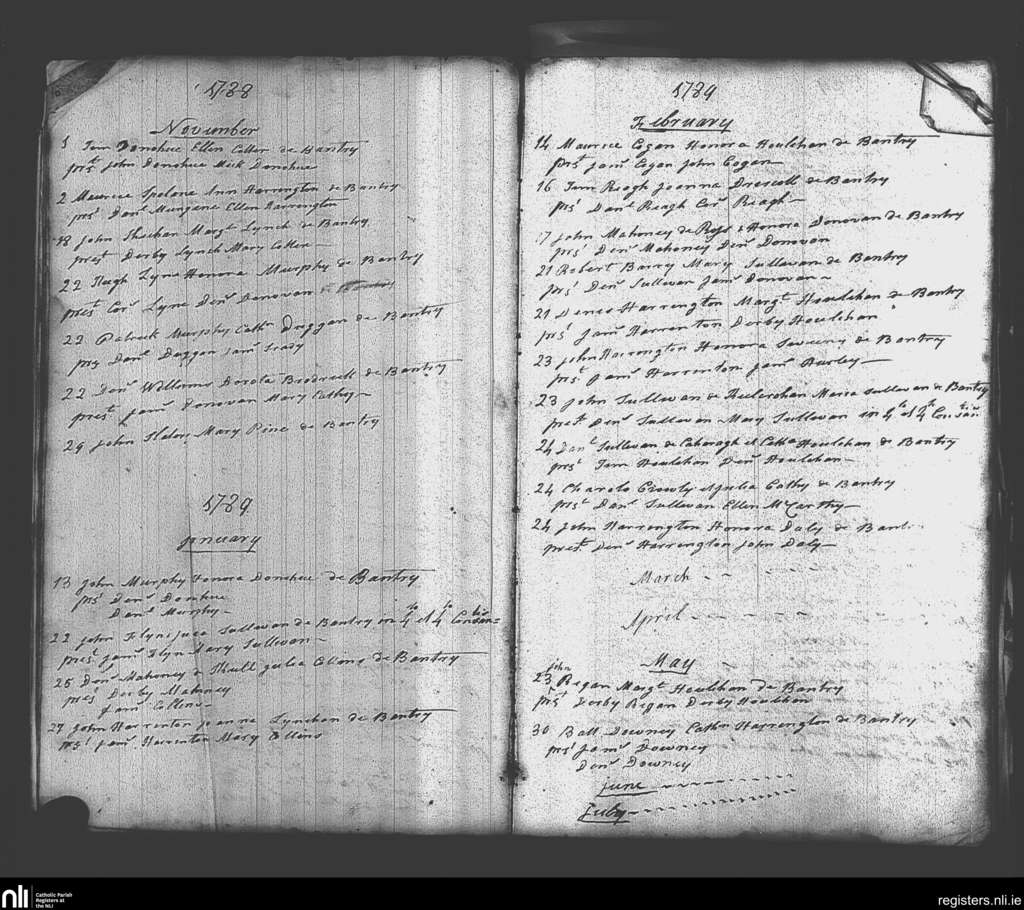 1788
November
1 Tem Donohue Ellen Coller de Bantry
prst John Donohue Mick Donohue
2 Maurice Spelane Ann Harrington de Bantry
prst Danl Mungane Ellen Harrington
18 John Sheehan Margt Lynch de Bantry
prest Derby Lynch Mary Coller
22 Hugh Lyne Honora Murphy de Bantry
prest Cors Lyne Denis Donovan
22 Patrick Murphy Cathn Duggan de Bantry
prs Danl Duggan Jams
22 Denis Williams Dorota Brodreck de Bantry
prest Jams Donovan Mary Cathy
29 John Mary Pine de Bantry
1789
January
13 John Murphy Honora Donohue de Bantry
prst Denis Donohue
Danl Murphy
22 John Flyn Sullevan de Bantry in 4to et 4to Consan=
prest Jams Flyn Mary Sullevan
25 Denis Mahoney de Skull Julia Collins de Bantry
prest Derby Mahoney
Jams Collins
27 John Harrenton Joanna Lynchan de Bantry
prst Jams Harrenton Mary Collins
1789
February
14 Maurice Cogan Honora Houlehan de Bantry
prst Jams Cogan John Cogan
16 Tem Reagh Joanna Drescoll de Bantry
prst Danl Reagh Cors Reagh
17 John Mahoney de Ross & Honora Donovan de Bantry
prst Denis Mahoney Denis Donovan
21 Robert Barry Mary Sullevan de Bantry
prst Denis Sullevan Jams Donovan
21 Denis Harrington Margt Houlehan de Bantry
prst Jams Harrenton Derby Houlehan
23 John Harrengton Honora Sweeny de Bantry
prst Jams Harrenton Jams Hurley
23 John Sullevan de Maria Sullevan de Bantry
prest Denis Sullevan Mary Sullevan in 4to et 4to Consan
24 Danl Sullevan de Caharagh et Cathn Houlehan de Bantry
prst Tem Houlehan Denis Houlehan
24 Charels Crowly Julia Cathy de Bantry
prst Danl Sullevan Ellen McCarthy
24 John Harrengton Honora Daly de Bantr
prest Denis Harrengton John Daly
March
April
May
John
23 Regan Margt Houlehan de Bantry
prst Derby Regan Derby Houlehan
30 Batt Downey Cathn Harrengton de Bantry
prst Jams Downey
Denis Downey
June
July
nli
Catholic Parish
Registers at
the NLI
registers.nli.ie